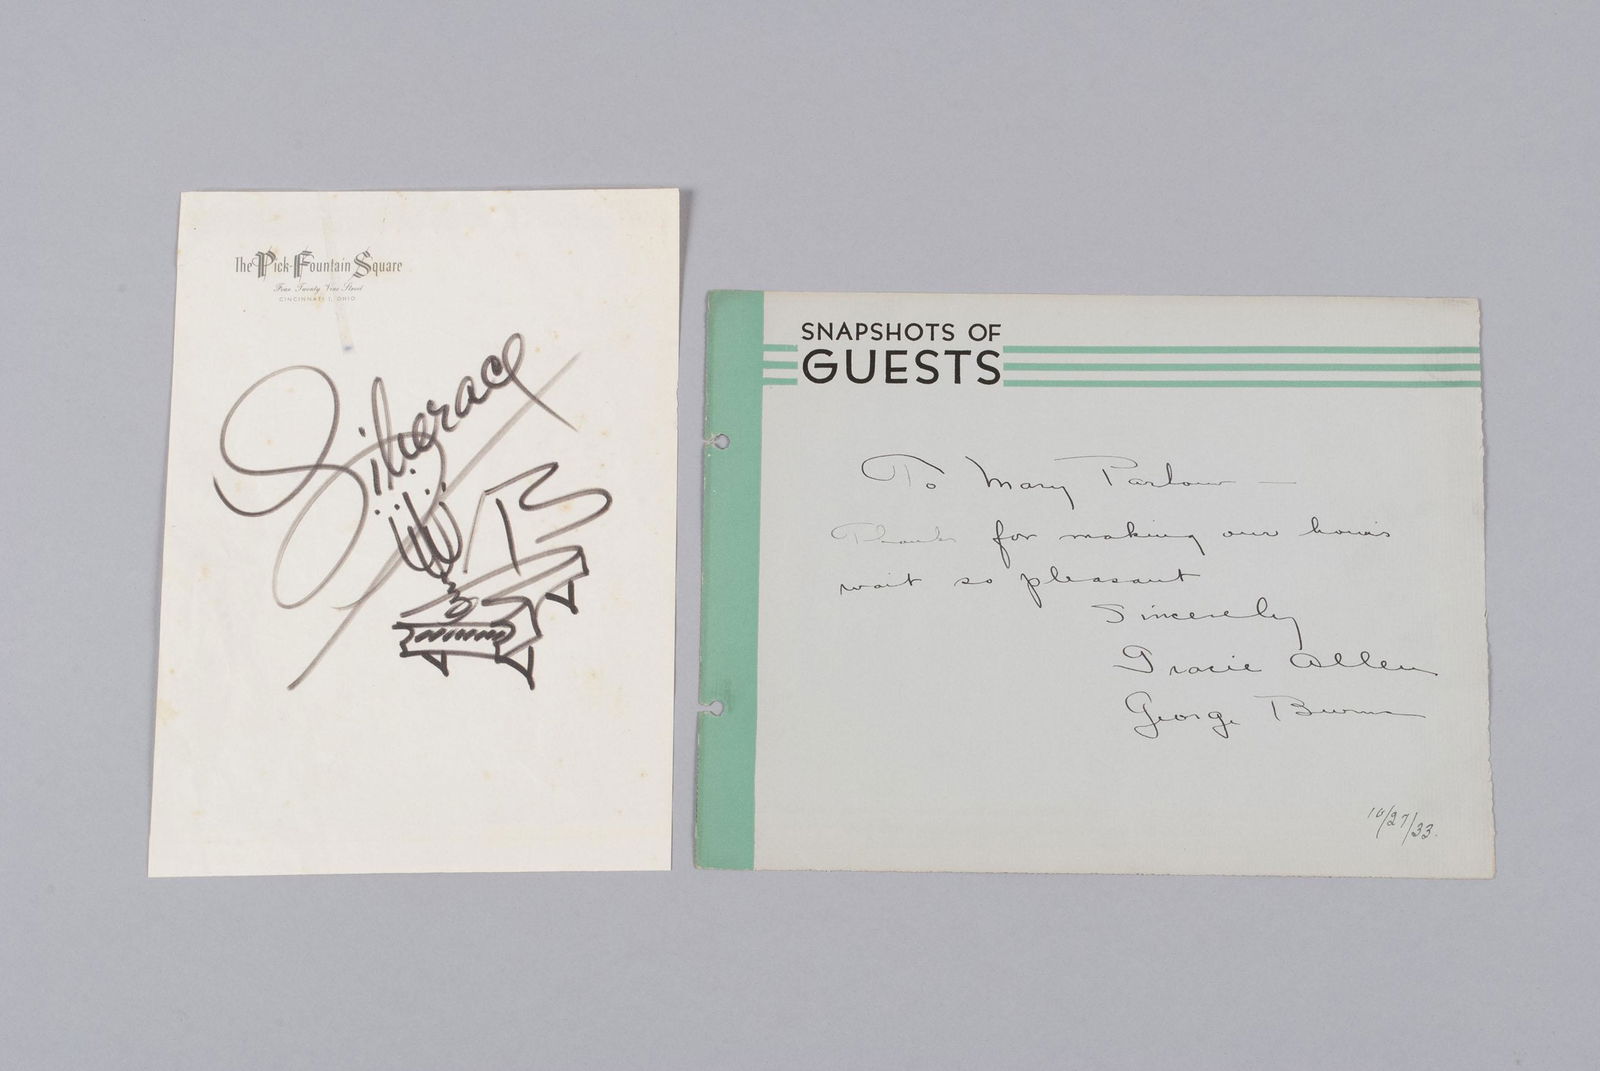 The Pick-Fountain Square
Four Twenty Vine Street
CINCINNATI 1, OHIO
Liberace
SNAPSHOTS OF
GUESTS
To Mary Parlow —
Thanks for making our hours
wait so pleasant
Sincerely
Gracie Allen
George Burns
10/27/33.